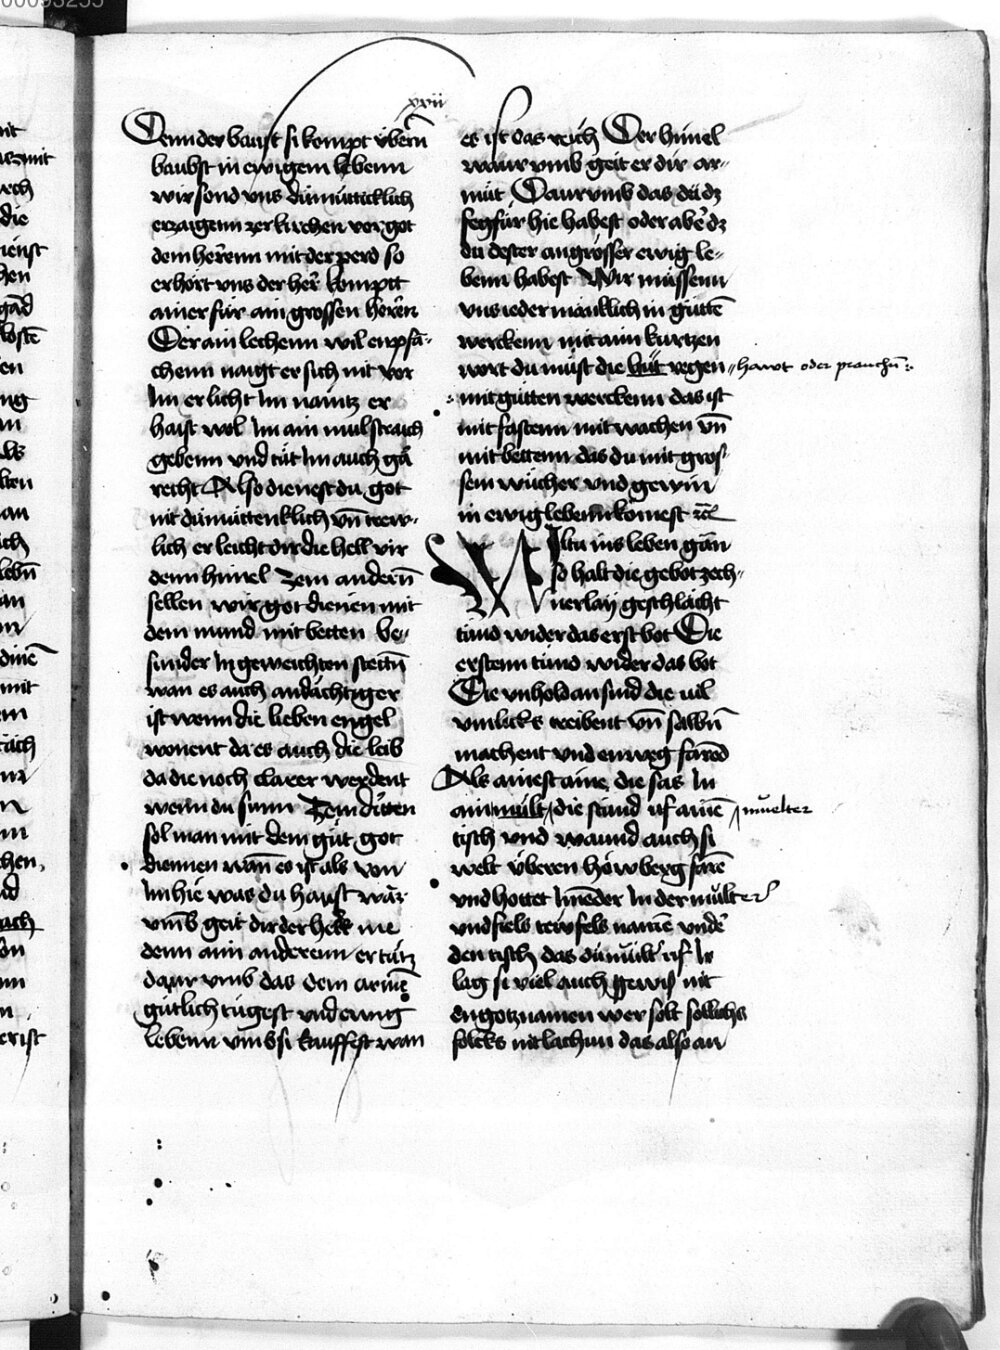 xxvii
Denn der baupst si kompt v̈bern̄
baubst in ewigem lebenn
wir sond vns dümüttiklich
erzaigenn zer kirchen vor got
dem herrenn mit der perd so
erhört vns der her̄ komptt
ainer für ain grossen herren
Der ain lechenn wil enpfā-
chenn naigt er sich nit vor
Im er licht Im naintz er
haist wol Im ain mulstraich
gebenn vnd tüt Im auch gā
recht Also dienest du got
nit dümüttenklich vn̄ trew-
lich er leicht dir die hell vir
denn himel Zem andern̄
sellen wir got dienen mit
dem mund mit betten be-
sunder In geweichten stettn̄
wan es auch andächtiger
ist wenn die lieben engel
wonent da es auch die leib
da die noch clarer werdent
wenn du sunn Zem dritten
sol man mit dem güt got
diennen wan̄ es ist als von
Im hie was du haust war
vmb geit dir der her̄ me
denn ainn anderenn er tütz
daur vmb das dem armē
gütlich tügest vnd ewig
lebenn vmb si kauffest wan
es ist das reich Der himel
waur vmb geit er dir ar-
müt Daur vmb das du dz
fegfür hie habest oder aber dz
du dester angrösser ewig le-
benn habest Wir müssenn
vns ieder mänklich in güttē
werckenn mit ainn kurtzen
wort du müst die hüt regen hawt oder pranchn̄
mit gütten werckenn das ist
mit fastenn mit wachen vn̄
mit bettenn das du mit gros-
sem wücher vnd gewin
in ewig lebenn komest etc
Wiltu ins leben gān
so halt die gebot zech-
nerlaÿ geschlächt
tünd wider das erst bot Die
erstenn tünd wider das bot
Die vnholdan sind die uil
vnlicks treibent vn̄ salbn̄
machent vnd enweg fared
Als ainest aine die sas In
ain mült die stünd uf ainē muelter
tisch vnd waund auch si
welt v̈beren höwberg farē
vnd hottet hinder In der mülter
vnd fiels tewfels namē vnder
den tisch das dü mült uf Ir
lag si viel auch gewis nit
en gotz namen wer solt söllichs
folcks nit lachnn das also an